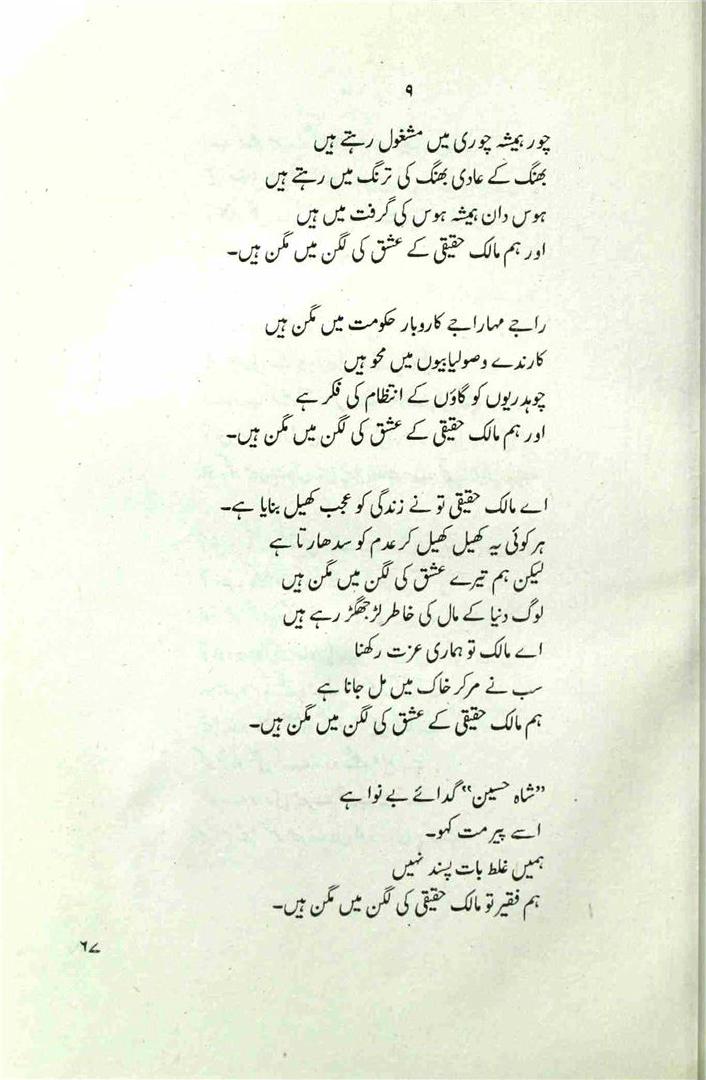 ۹
چور ہمیشہ چوری میں مشغول رہتے ہیں
بھنگ کے عادی بھنگ کی ترنگ میں رہتے ہیں
ہوس دان ہمیشہ ہوس کی گرفت میں ہیں
اور ہم مالک حقیقی کے عشق کی لگن میں مگن ہیں۔
راجے مہاراجے کاروبار حکومت میں مگن ہیں
کارندے وصولیابیوں میں محو ہیں
چوہدریوں کو گاؤں کے انتظام کی فکر ہے
اور ہم مالک حقیقی کے عشق کی لگن میں مگن ہیں۔
اے مالک حقیقی تو نے زندگی کو عجب کھیل بنایا ہے۔
ہر کوئی یہ کھیل کھیل کر عدم کو سدھارتا ہے
لیکن ہم تیرے عشق کی لگن میں مگن ہیں
لوگ دنیا کے مال کی خاطر لڑ جھگڑ رہے ہیں
اے مالک تو ہماری عزت رکھنا
سب نے مرکر خاک میں مل جانا ہے
ہم مالک حقیقی کے عشق کی لگن میں مگن ہیں۔
"شاہ حسین" گدائے بے نوا ہے
اسے پیر مت کہو۔
ہمیں غلط بات پسند نہیں
ہم فقیر تو مالک حقیقی کی لگن میں مگن ہیں۔
۶۷